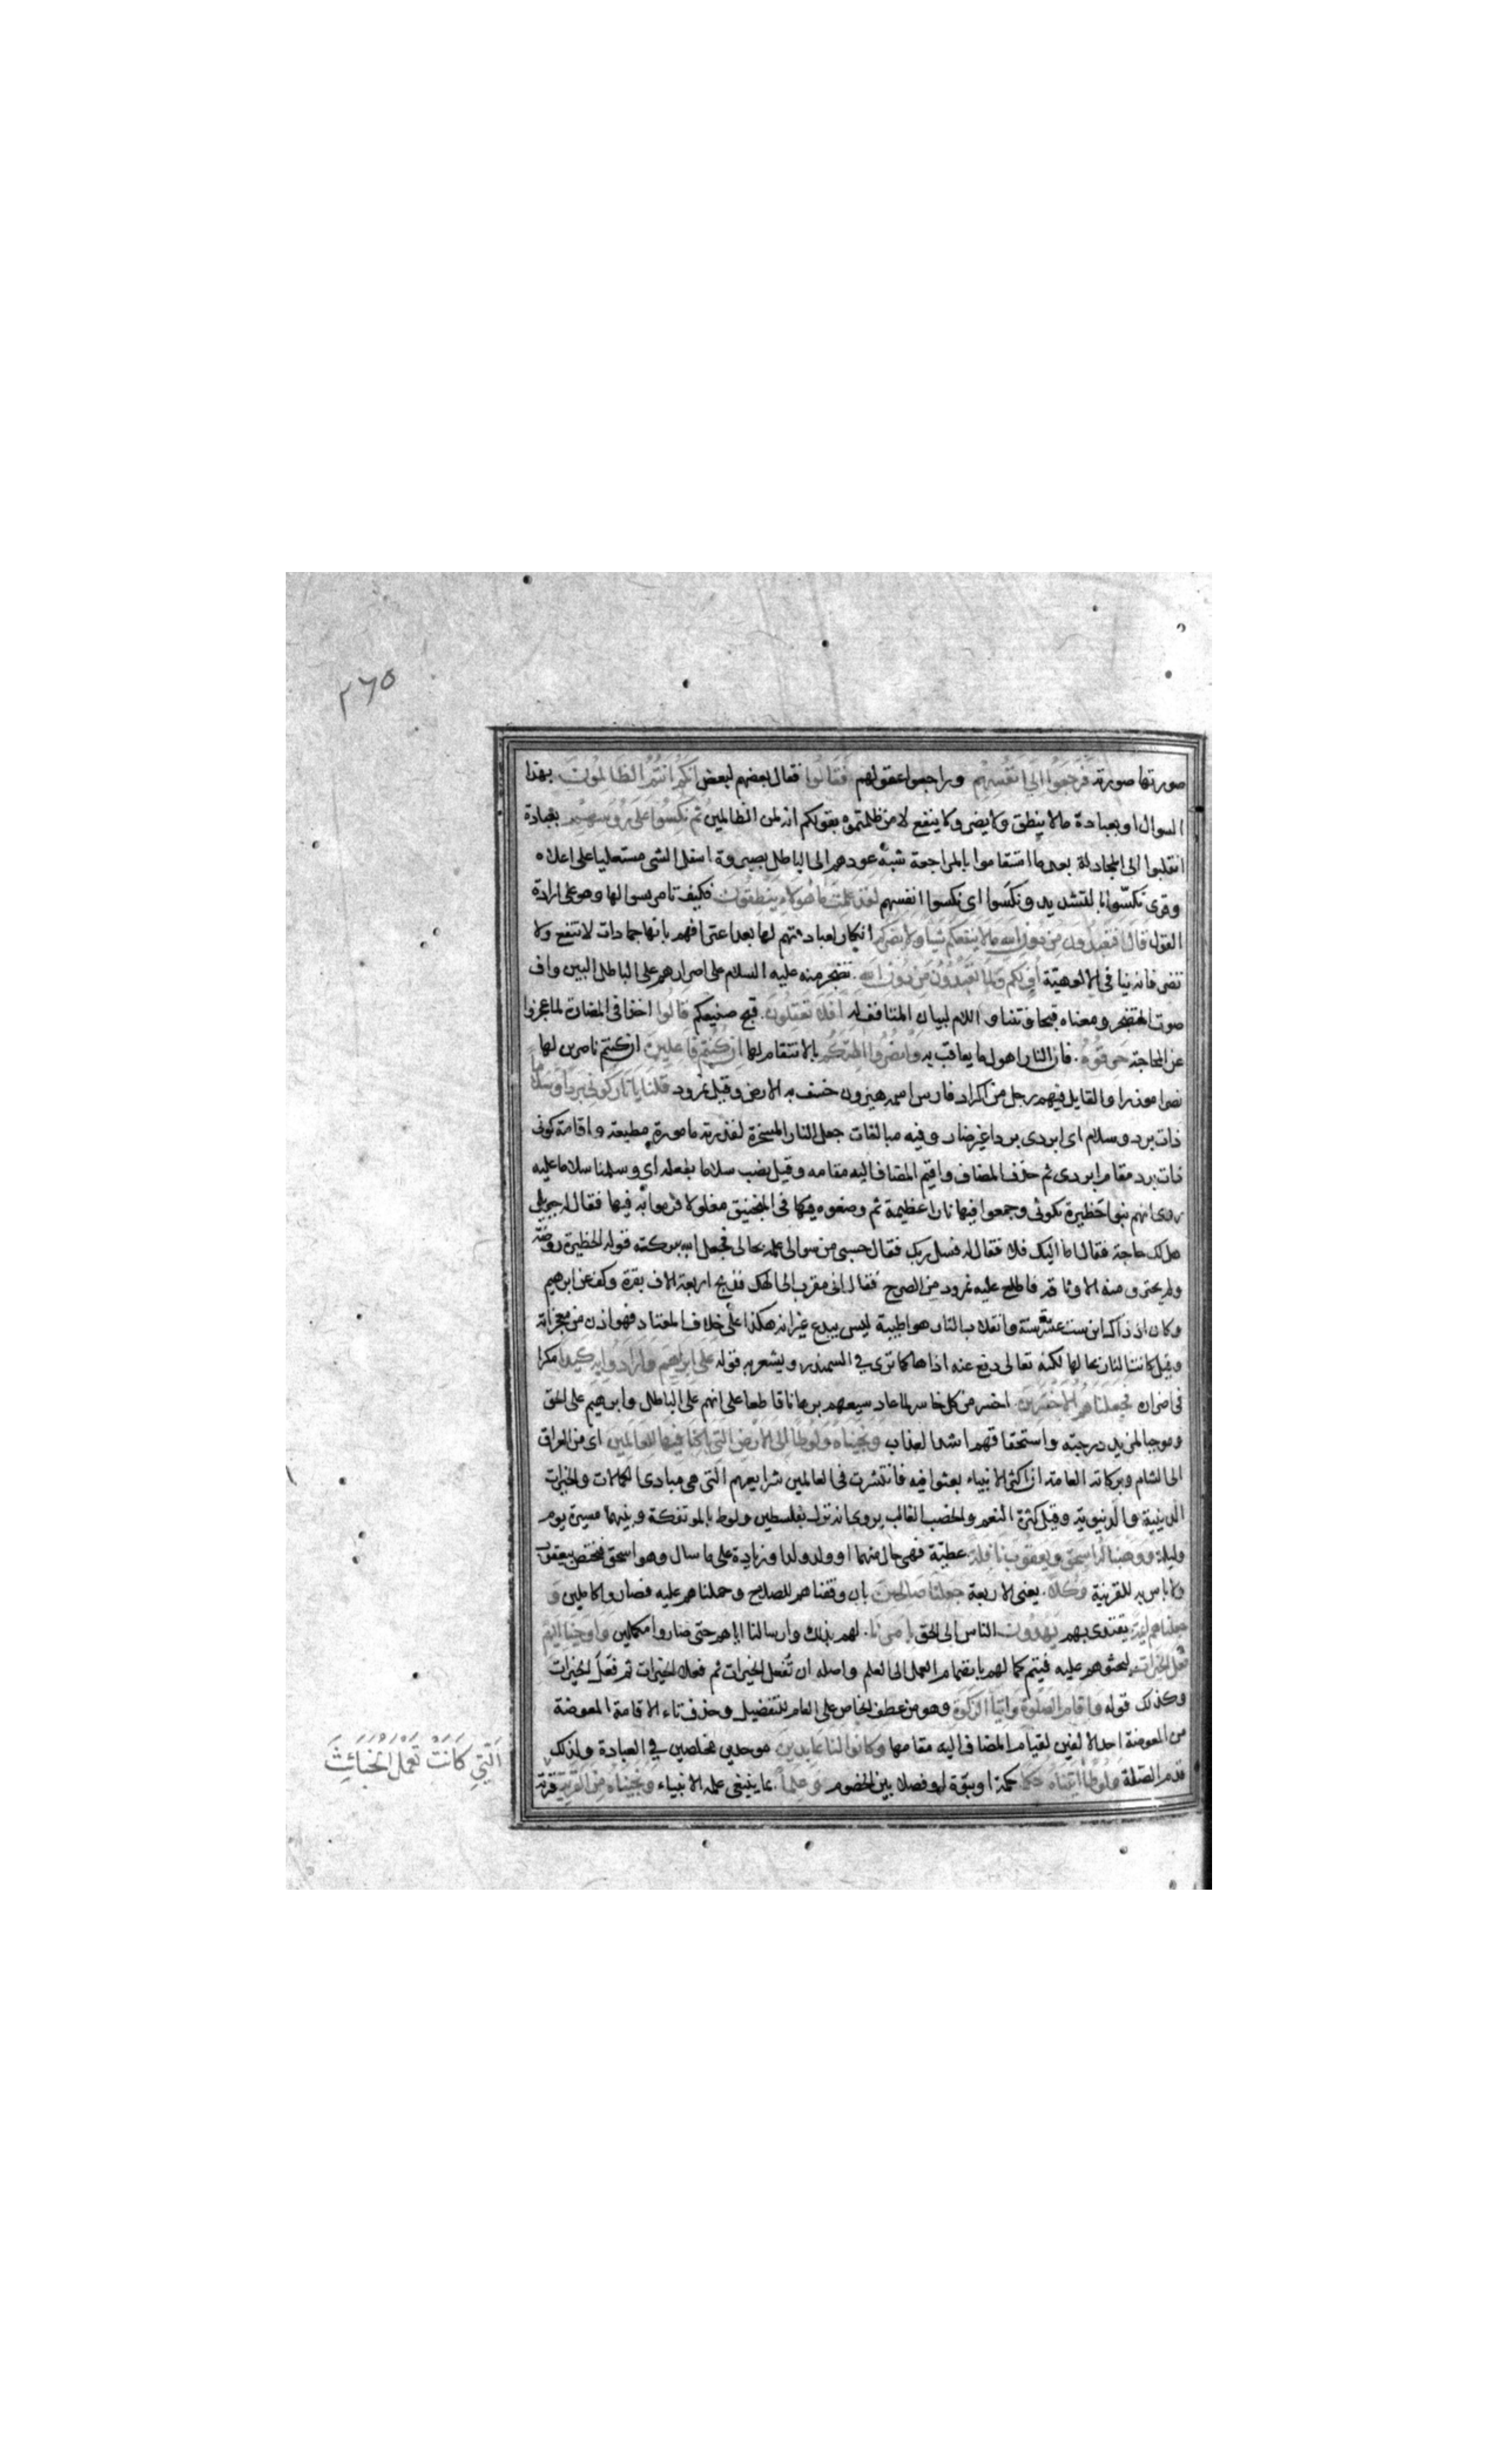 ٢٦٥
صورتها صورته فَرَجَعُوا اِلَى انفُسِهِم وراجعوا عقولهم فَقَالُوا فقال بعضهم لبعض اِنَّكُم اَنتُمُ الظالِمُونَ بهذا
السوال او بعبادة مالا ينطق ولا يضر ولا ينفع لا من ظلمتموه بقولكم انه لمن الظالمين ثُم نُكِسُوا عَلى رُؤُسِهِم بعبادة
انقلبوا الى المجادلة بعد ما استقاموا بالمراجعة شبه عودهم الى الباطل بصيروة اسفل الشى مستعليا على اعلاه
وقرى نكّسوا بالتشديد ونكَسوا اى نكسوا انفسهم لقد عَلِمتَ ما هَؤُلاءِ يَنطِقُونَ فكيف تامر بسوالها وهو على ارادة
القول قالَ اَفَتَعبُدُونَ مِن دُونِ اللهِ مالا يَنفَعُكُم شَيئا ولا يَضُركُم انكار لعبادتهم لها بعد اعترافهم بانها جمادات لا تنفع ولا
تضر فانه ينافى الالوهية اُفٍ لَكُم وَلِما تَعبُدُونَ مِن دُونِ اللهِ تضجر منه عليه السلام على اصرارهم على الباطل البين واف
صوت المتضجر ومعناه قبحا ونتنا و اللام لبيان المتافف له اَفَلا تَعقِلُونَ قبح صنيعكم قالُوا اخذا فى المضارة لما عجزوا
عن المحاجة حَرِقُوهُ فان النار اهول ما يعاقب به وَانصُرُوا الِهَتَكُم بالانتقام لها اِن كُنتُم فاعِلِينَ ان كنتم ناصرين لها
نصرا موزرا والقايل فيهم رجل من اكراد فارس اسمه هيزون خسف به الارض وقيل نمرود قُلنا يا نارُ كُونِى بَرداً وَسَلاماً
ذات برد وسلام اى ابردى بردا غير ضار وفيه مبالغات جعل النار المسخرة لقدرته مامورة مطيعة واقامة كونى
ذات برد مقام ابردى ثم حذف المضاف واقيم المضاف اليه مقامه وقيل نصب سلاما بفعله اى وسلمنا سلاما عليه
روى انهم بنوا حظيرة بكوثى وجمعوا فيها نارا عظيمة ثم وضعوه فيها فى المنجنيق مغلولا فرموا به فيها فقال له جبريل
هل لك حاجة فقال اما اليك فلا فقال له فسل ربك فقال حسبى من سوالى علمه بحالى فجعل الله ببركته قوله الحظيرة روضة
ولم يحترق منه الا وثاقه فاطلع عليه نمرود من الصرح فقال انى مقرب الى الهك فذبح اربعة الاف بقرة وكف عن ابرهيم
وكان اذ ذاك ابن ست عشرة سنة وانقلاب النار هوا طيبة ليس ببدع غير انه هكذا على خلاف المعتاد فهو اذن من معجزاته
وقيل كانت النار بحالها لكنه تعالى دفع عنه اذاها كما ترى فى السمندر ويشعر به قوله عَلَى اِبرهِيمَ وَاَرادُوا بِهِ كَيدا مكرا
فى اضراره فَجَعَلناهُمُ الاَخسَرِينَ اخسر من كل خاسر لما عاد سعيهم برهانا قاطعا على انهم على الباطل وابرهيم على الحق
وموجبا لمزيد درجته واستحقاقهم اشد العذاب وَنَجَيناهُ وَلُوطا اِلَى الاَرضِ التِى بارَكنا فِيها لِلعالَمِينَ اى من العراق
الى الشام وبركاته العامة ان اكثر الانبياء بعثوا فيه فانتشرت فى العالمين شرايعهم التى هى مبادى الكمالات والخيرات
الدينية والدنيوية وقيل كثرة النعم والخصب الغالب روى انه نزل بفلسطين ولوط بالموتفكة وبينهما مسيرة يوم
وليلة وَوَهَبنا لَهُ اِسحقَ وَيَعقُوبَ نافِلَة عطية فهى حال منهما او ولد ولد او زيادة على ما سال وهو اسحق فتختص بيعقوب
ولا باس به للقرينة وَكُلا يعنى الاربعة جَعَلنا صالِحِينَ بان وفقناهم للصلاح وحملناهم عليه فصاروا كاملين وَ
جَعَلناهُم اَئِمَة يقتدى بهم يَهدُونَ الناس الى الحق بِاَمرِنا لهم بذلك وارسالنا اياهم حتى صاروا مكملين وَاَوحَينا اِلَيهِم
فِعلَ الخَيراتِ ليحثوهم عليه فيتم كمالهم بانضمام العمل الى العلم واصله ان تُفعل الخيرات ثم فعلا الخيرات ثم فعل الخيرات
وكذلك قوله وَاِقامَ الصَلوةِ وَاِيتاءَ الزكوةِ وهو من عطف الخاص على العام للتفضيل وحذف تاء الاقامة المعوضة
من المعوضة احد الالفين لقيام المضاف اليه مقامها وَكانُوا لَنا عابِدِينَ موحدين مخلصين فى العبادة ولذلك
قدم الصلة وَلُوطا اتَيناهُ حُكما حكمة او نبوة او فصلا بين الخصوم وَعِلماً بما ينبغى علمه الانبياء وَنَجَيناهُ مِنَ القَريَةِ قرية
اَلَّتِي كَانَتْ تَعْمَلُ الْخَبَائِثَ